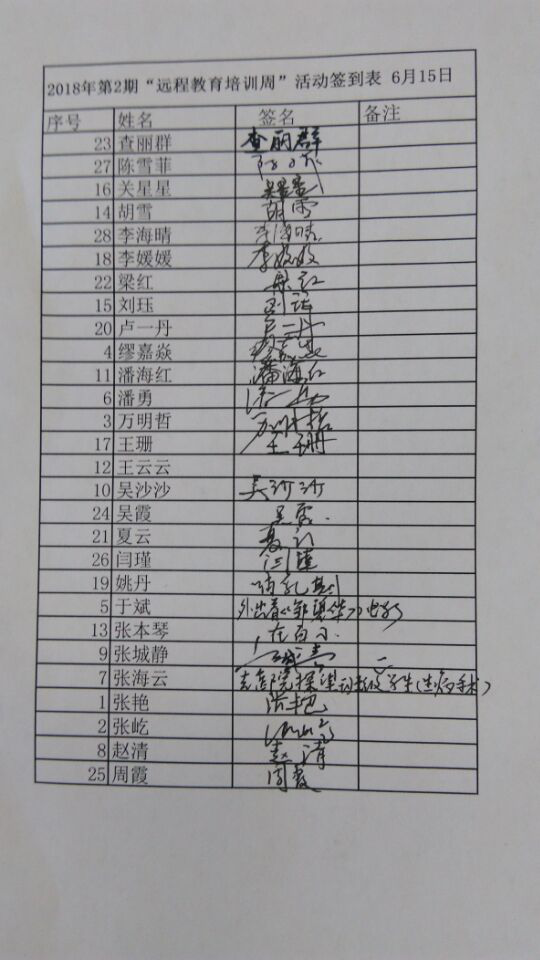 2018年第2期“远程教育培训周”活动签到表 6月15日
序号 姓名 签名 备注
23 查丽群 查丽群
27 陈雪菲
16 关星星
14 胡雪 胡雪
28 李海晴 李海晴
18 李媛媛 李媛媛
22 梁红 梁红
15 刘珏
20 卢一丹 卢一丹
4 缪嘉焱
11 潘海红 潘海红
6 潘勇
3 万明哲 万明哲
17 王珊 王珊
12 王云云
10 吴沙沙 吴沙沙
24 吴霞 吴霞
21 夏云
26 闫瑾 闫瑾
19 姚丹
5 于斌 外出看
13 张本琴
9 张城静
7 张海云 去部院探望 学生(生病手术)
1 张艳 张艳
2 张屹
8 赵清 赵清
25 周霞 周霞